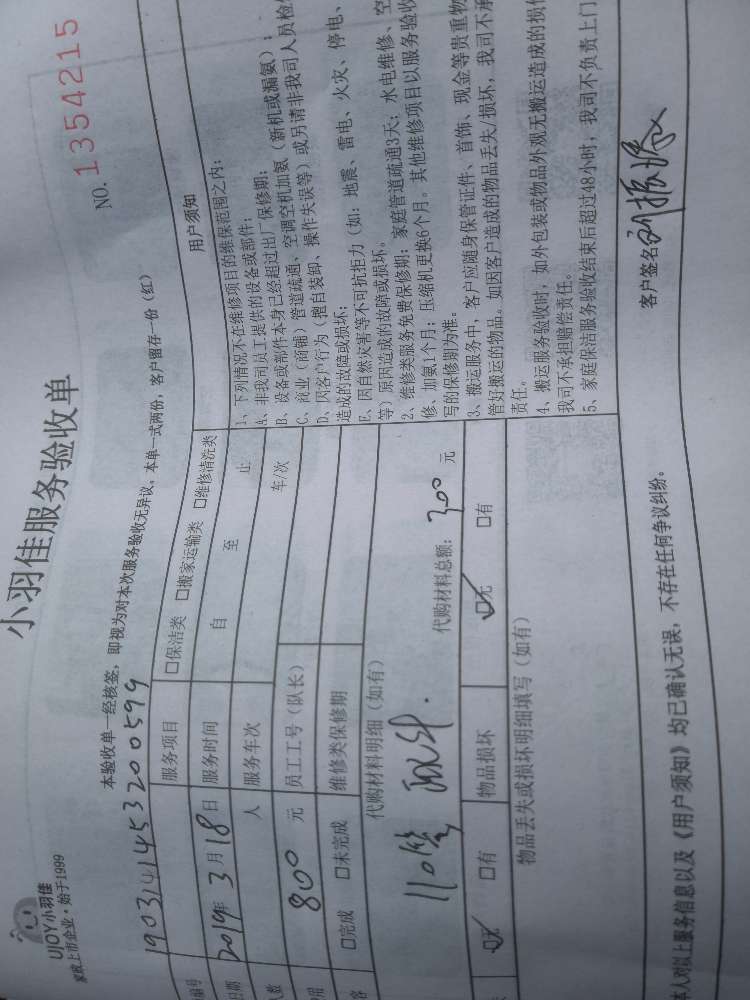 UJOY小羽佳
家政上市企业·始于1999
小羽佳服务验收单
NO. 1354215
本验收单一经核签，即视为对本次服务验收无异议，本单一式两份，客户留存一份（红）
编号 1903141453200599
服务项目 □保洁类 □搬家运输类 □维修清洗类
日期 2019年3月18日 服务时间 自 至 止
人数 人 服务车次 车/次
800 元 员工工号（队长）
□完成 □未完成 维修类保修期
代购材料明细（如有）
110管 代购材料总额：300 元
□无 □有 物品损坏 □无 □有
物品丢失或损坏明细填写（如有）
用户须知
1、下列情况不在维修项目的维保范围之内：
A、非我司员工提供的设备或部件；
B、设备或部件本身已经超过出厂保修期；
C、商业（商铺）管道疏通、空调空机加氨（新机或漏氨）；
D、因客户行为（擅自装卸、操作失误等）或另请非我司人员检
造成的故障或损坏；
E、因自然灾害等不可抗拒力（如：地震、雷电、火灾、停电、
等）原因造成的故障或损坏。
2、维修类服务免费保修期：家庭管道疏通3天；水电维修、空
修、加氨1个月；压缩机更换6个月。其他维修项目以服务验收
写的保修期为准。
3、搬运服务中，客户应随身保管证件、首饰、现金等贵重物
管好搬运的物品。如因客户造成的物品丢失/损坏，我司不承
责任。
4、搬运服务验收时，如外包装或物品外观无搬运造成的损
我司不承担赔偿责任。
5、家庭保洁服务验收结束后超过48小时，我司不负责上门
本人对以上服务信息以及《用户须知》均已确认无误，不存在任何争议纠纷。
客户签名